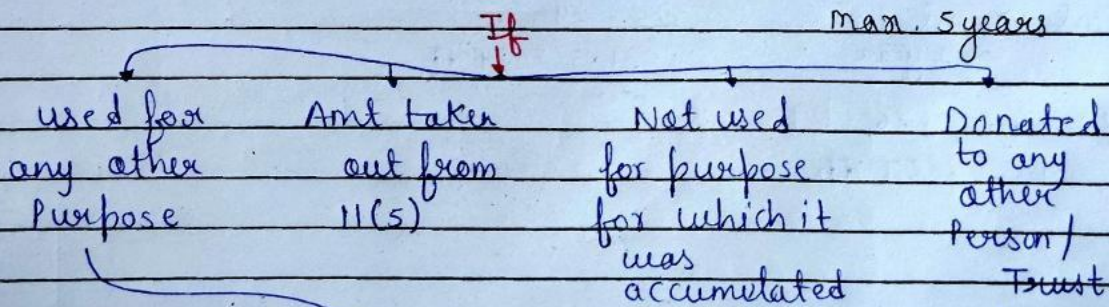 If
Max. 5 years
used for
any other
Purpose
Amt taken
out from
11(5)
Not used
for purpose
for which it
was
accumulated
Donated
to any
other
Person/
Trust